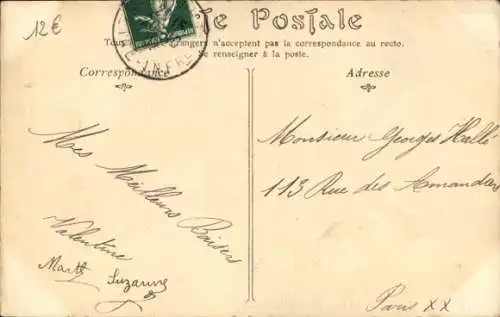 12€
Carte Postale
Tous étrangers n'acceptent pas la correspondance au recto.
se renseigner à la poste.
Correspondance
Adresse
Mes Meilleurs Baisers
Valentine
Marth Suzanne
Monsieur Georges Hallé
113 Rue des Amandiers
Paris XX
INFRE